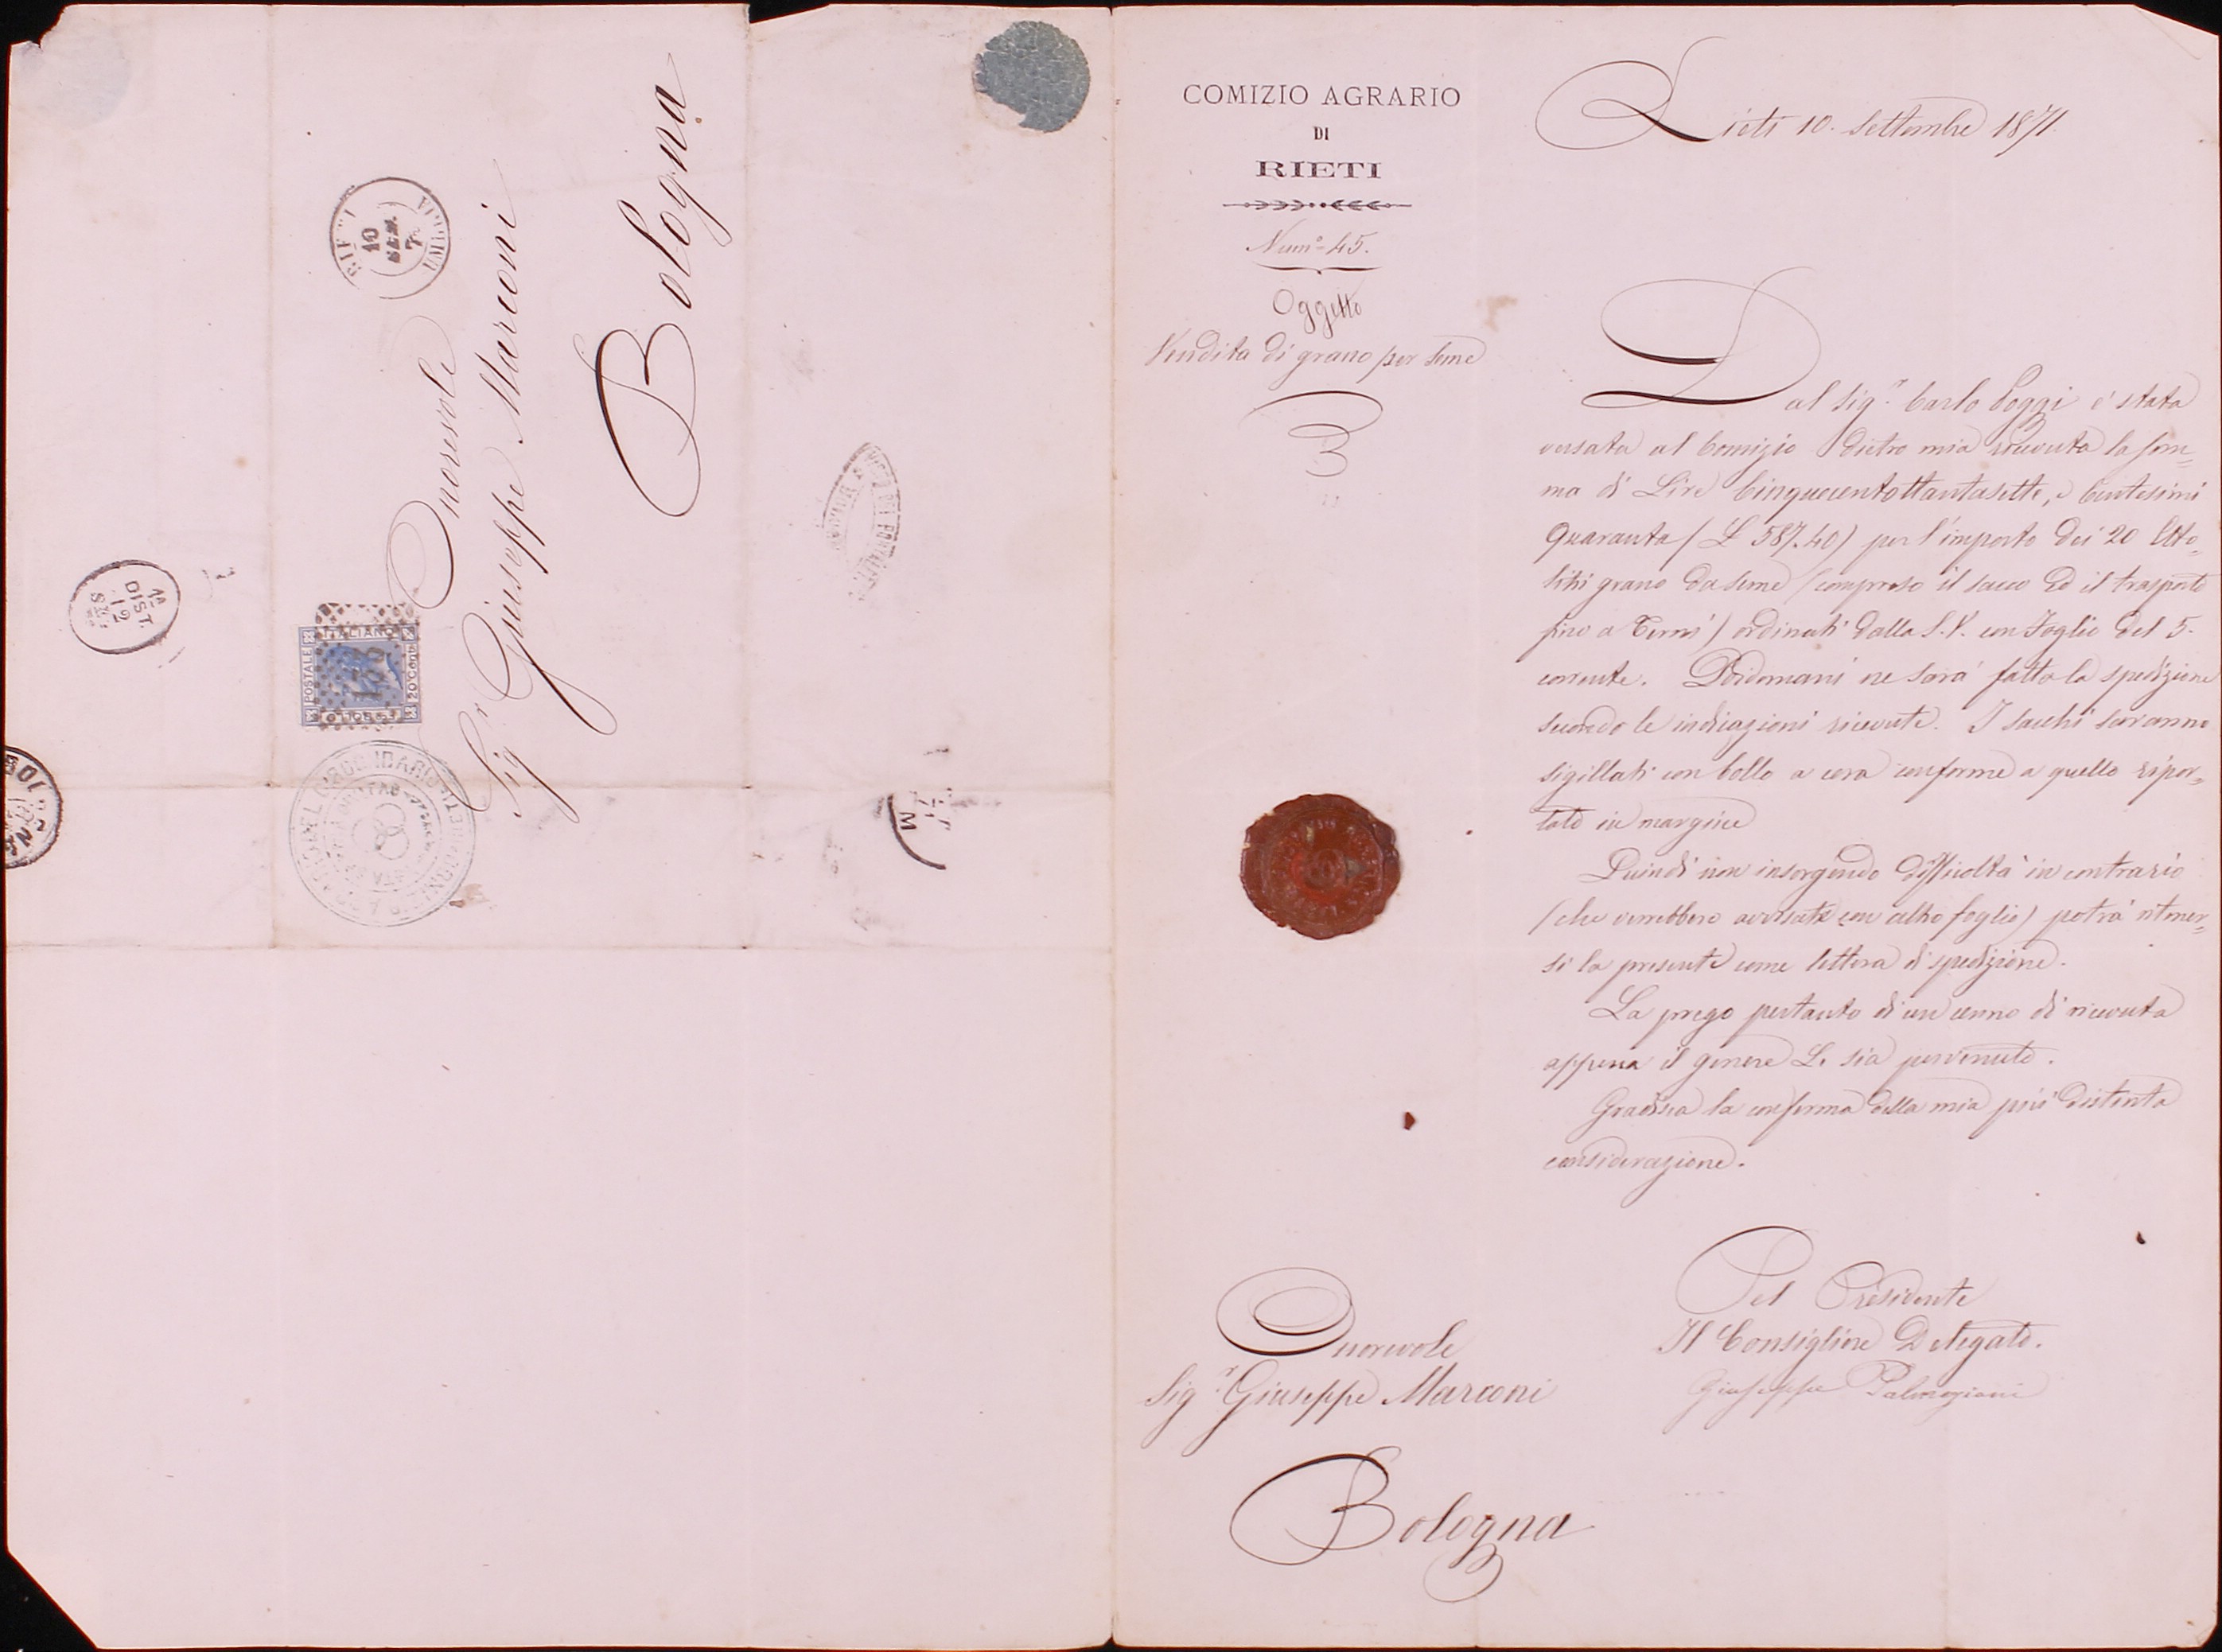 Onorevole
Sigr. Giuseppe Marconi
Bologna
RIETI
UMBRIA
10
SET.
POSTALE
ITALIANO
20 Cent
138
1A
DIST.
12
M
COMIZIO AGRARIO
DI
RIETI
Num° 45.
Oggetto
Vendita di grano per seme
Rieti 10. Settembre 1871.
Dal Sigr. Carlo Poggi e' stata
versata al Comizio dietro mia ricevuta la som=
ma di Lire Cinquecentottantasette, e Centesimi
Quaranta (L 587.40) per l'importo dei 20 Etto=
litri grano da seme (compreso il sacco ed il trasporto
fino a Terni) ordinati dalla S.V. con foglio del 5.
corrente. Doidomani ne sarà fatta la spedizione
secondo le indicazioni ricevute. I sacchi saranno
sigillati con bollo a cera conforme a quello ripor=
tato in margine
Quindi non insorgendo difficoltà in contrario
(che verrebbero avvisate con altro foglio) potrà ritener=
si la presente come lettera di spedizione.
La prego pertanto di un cenno di ricevuta
appena il genere Le sia pervenuto.
Gradisca la conferma della mia più distinta
considerazione.
Pel Presidente
Il Consigliere Delegato.
Giuseppe Palmegiani
Onorevole
Sigr. Giuseppe Marconi
Bologna